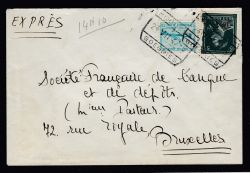 EXPRÈS
14H10
Société Française de Banque
et de dépôts,
(M. Pasteur)
72, rue Royale
Bruxelles